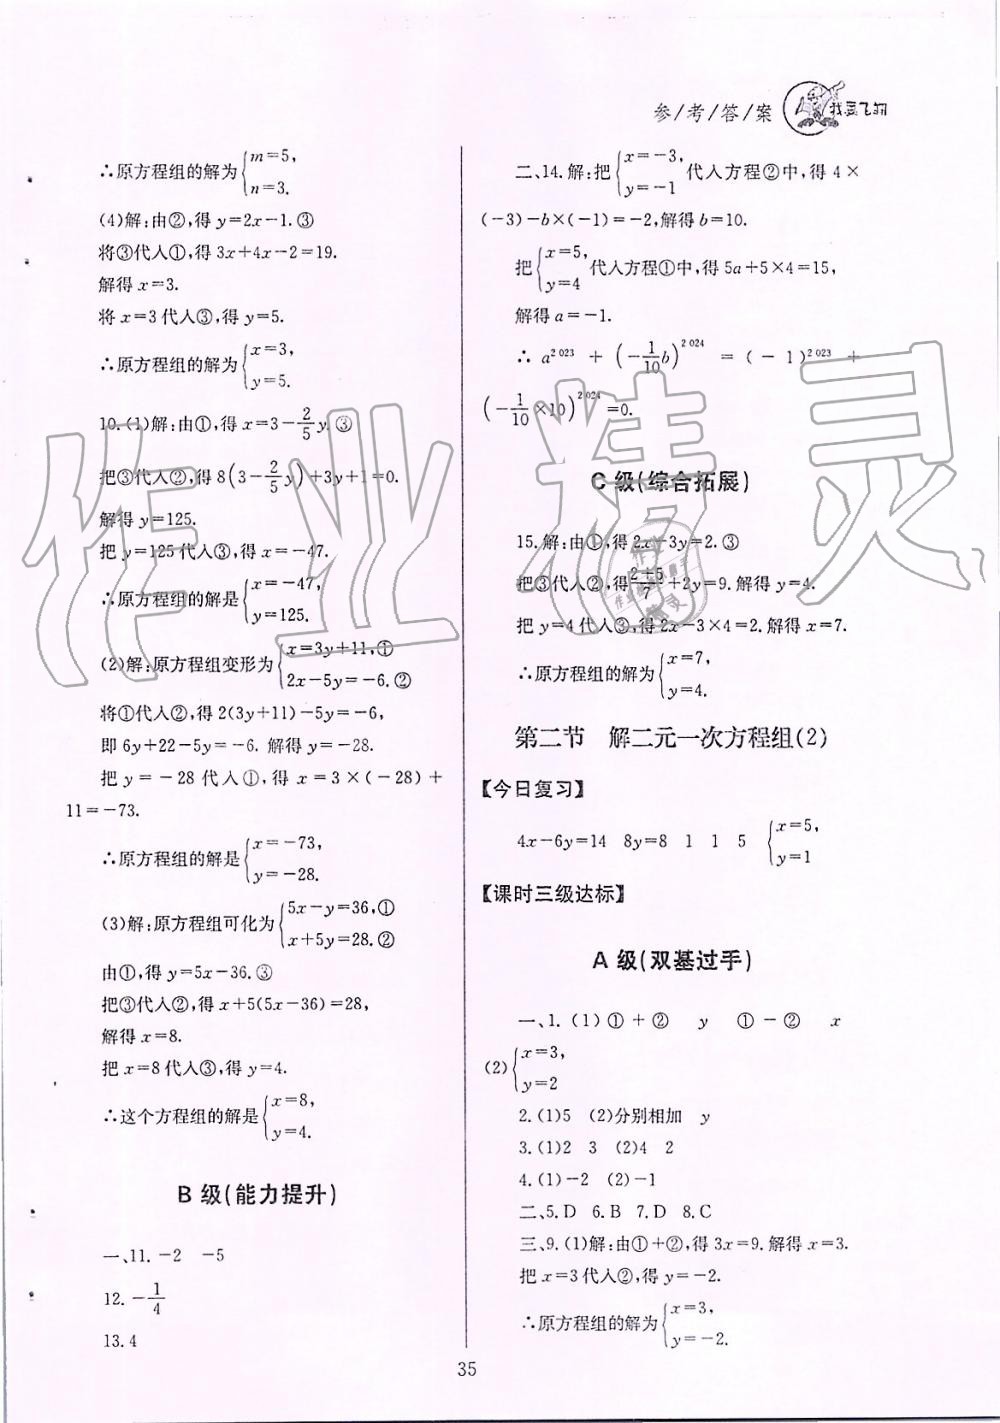 参/考/答/案
∴原方程组的解为{m=5,
n=3.
(4)解:由②,得 y=2x-1.③
将③代人①,得 3x+4x-2=19.
解得 x=3.
将 x=3代人③,得 y=5.
∴原方程组的解为{x=3,
y=5.
10.(1)解:由①,得 x=3-2/5y.③
把③代人②,得 8(3-2/5y)+3y+1=0.
解得 y=125.
把 y=125代人③,得 x=-47.
∴原方程组的解是{x=-47,
y=125.
(2)解:原方程组变形为{x=3y+11,①
2x-5y=-6.②
将①代人②,得 2(3y+11)-5y=-6,
即 6y+22-5y=-6. 解得 y=-28.
把 y=-28 代人①,得 x=3×(-28)+
11=-73.
∴原方程组的解是{x=-73,
y=-28.
(3)解:原方程组可化为{5x-y=36,①
x+5y=28.②
由①,得 y=5x-36.③
把③代人②,得 x+5(5x-36)=28,
解得 x=8.
把 x=8代人③,得 y=4.
∴这个方程组的解是{x=8,
y=4.
B 级(能力提升)
一、11.-2 -5
12.-1/4
13.4
二、14.解:把{x=-3,
y=-1 代人方程②中,得 4×
(-3)-b×(-1)=-2,解得 b=10.
把{x=5,
y=4 代人方程①中,得 5a+5×4=15,
解得 a=-1.
∴ a^2 023 + (-1/10b)^2 024 = (-1)^2 023 +
(-1/10×10)^2 024=0.
C 级(综合拓展)
15.解:由①,得 2x-3y=2.③
把③代人②,得 2+5/7+2y=9.解得 y=4.
把 y=4代人③,得 2x-3×4=2.解得 x=7.
∴原方程组的解为{x=7,
y=4.
第二节 解二元一次方程组(2)
【今日复习】
4x-6y=14 8y=8 1 1 5 {x=5,
y=1
【课时三级达标】
A 级(双基过手)
一、1.(1)①+② y ①-② x
(2){x=3,
y=2
2.(1)5 (2)分别相加 y
3.(1)2 3 (2)4 2
4.(1)-2 (2)-1
二、5.D 6.B 7.D 8.C
三、9.(1)解:由①+②,得 3x=9.解得 x=3.
把 x=3代人②,得 y=-2.
∴原方程组的解为{x=3,
y=-2.
35
作业精灵